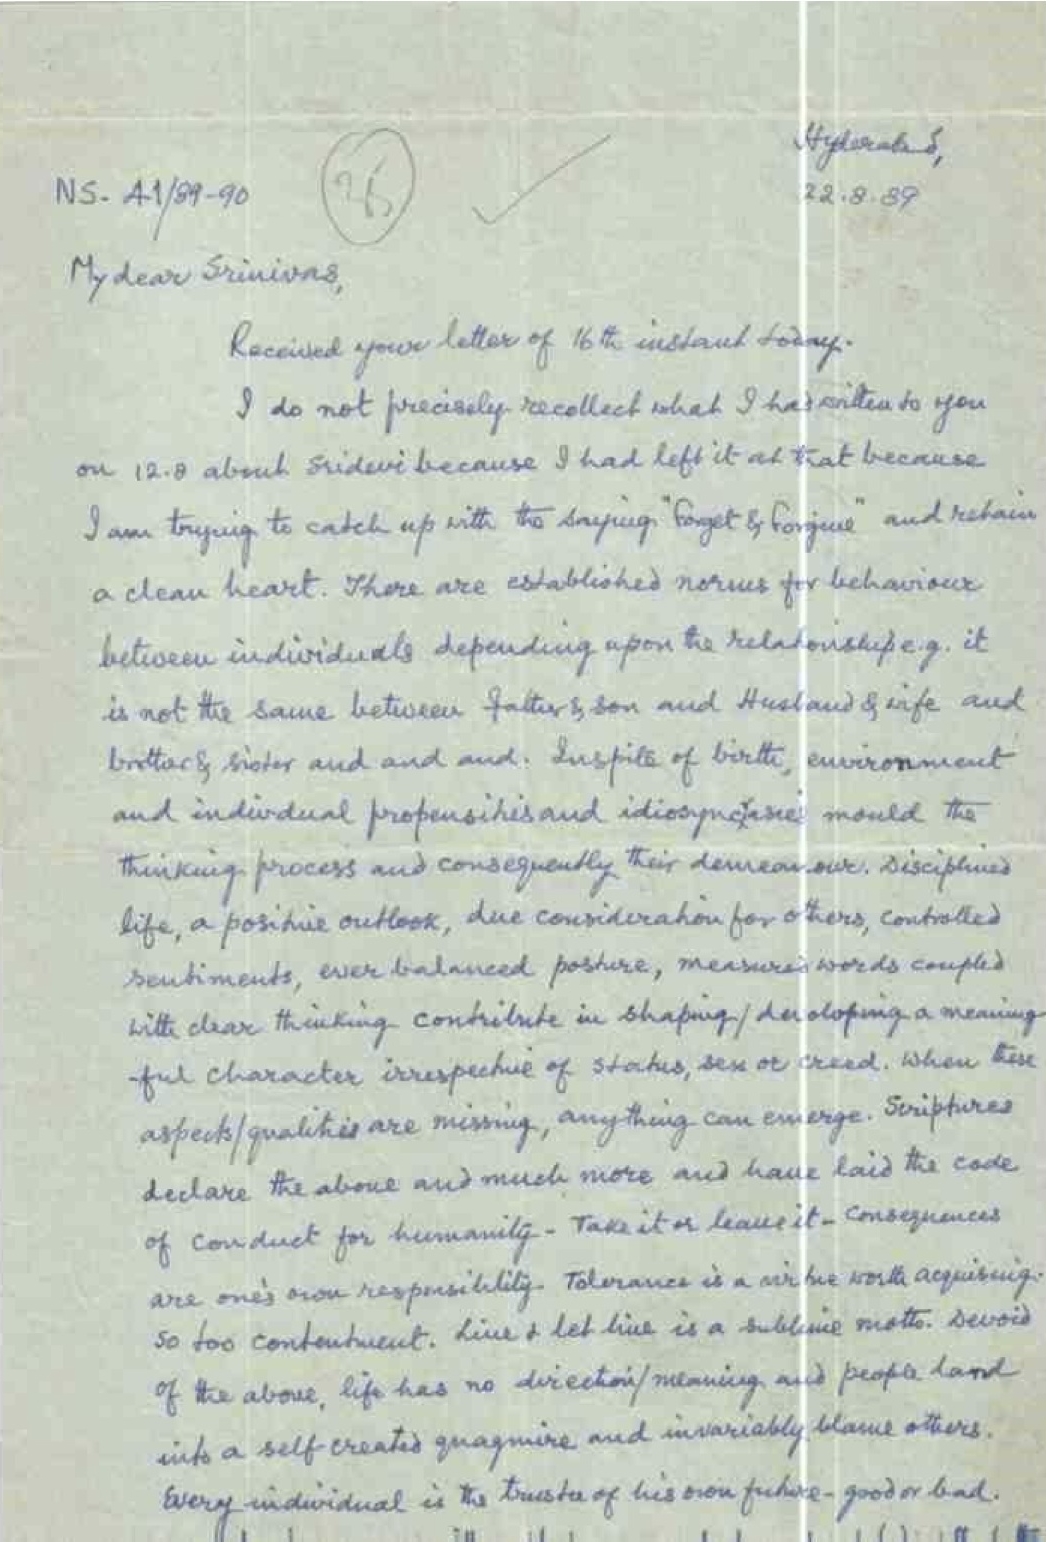 Hyderabad,
NS. 41/89-90
22.8.89
My dear Srinivas,
Received your letter of 16th instant today.
I do not precisely recollect what I had written to you
on 12.8 about Sridevi because I had left it at that because
I am trying to catch up with the saying "Forget & Forgive" and retain
a clean heart. There are established norms for behaviour
between individuals depending upon the relationship e.g. it
is not the same between father & son and Husband & wife and
brother & sister and and and. Inspite of birth, environment
and individual propensities and idiosyncrasies mould the
thinking process and consequently their demeanour. Disciplined
life, a positive outlook, due consideration for others, controlled
sentiments, ever balanced posture, measured words coupled
with clear thinking contribute in shaping/developing a meaning
-ful character irrespective of status, sex or creed. When these
aspects/qualities are missing, anything can emerge. Scriptures
declare the above and much more and have laid the code
of conduct for humanity - Take it or leave it - consequences
are one's own responsibility. Tolerance is a virtue worth acquiring.
So too contentment. Live & let live is a sublime motto. Devoid
of the above, life has no direction/meaning and people land
into a self-created quagmire and invariably blame others.
Every individual is the trustee of his own future - good or bad.